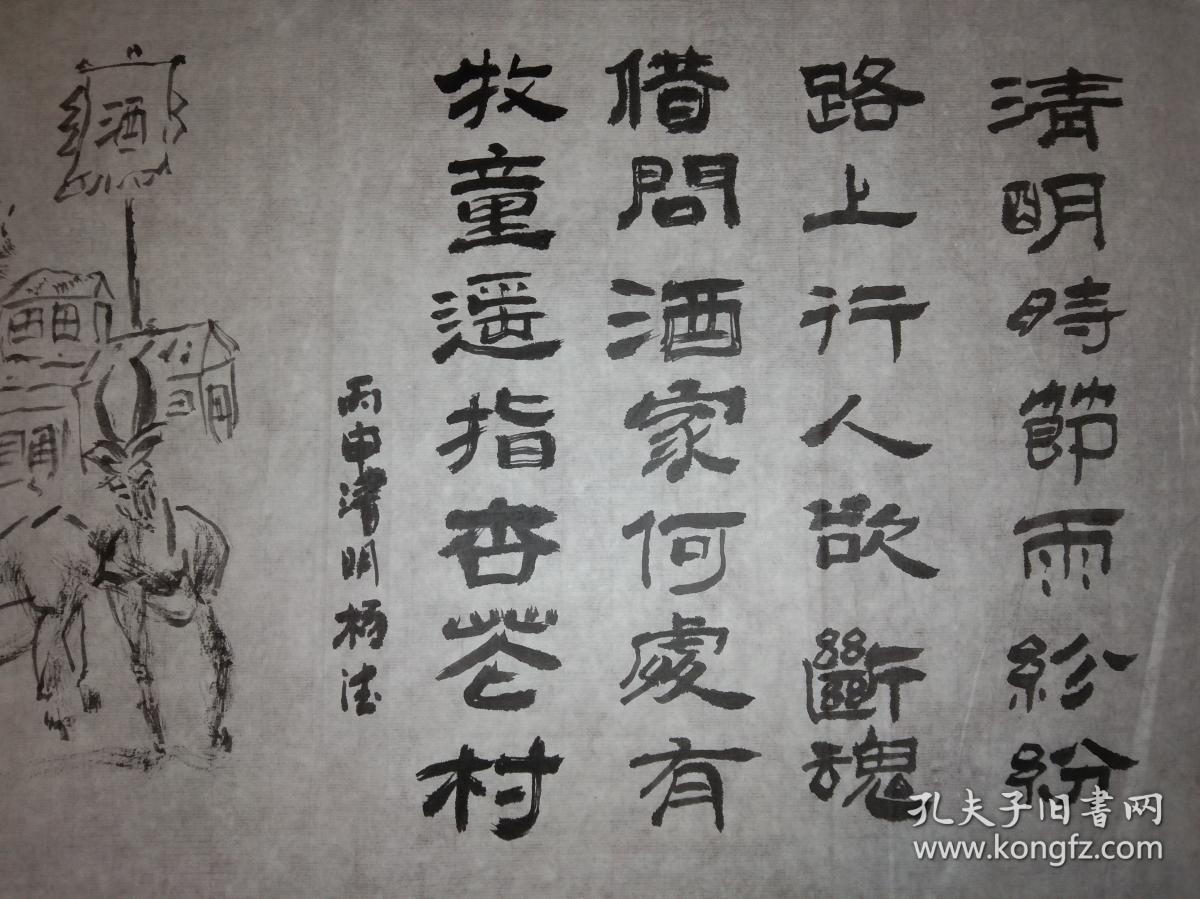 清明時節雨紛紛
路上行人欲斷魂
借問酒家何處有
牧童遥指杏花村
丙申清明 楊
酒
孔夫子旧書网
www.kongfz.com